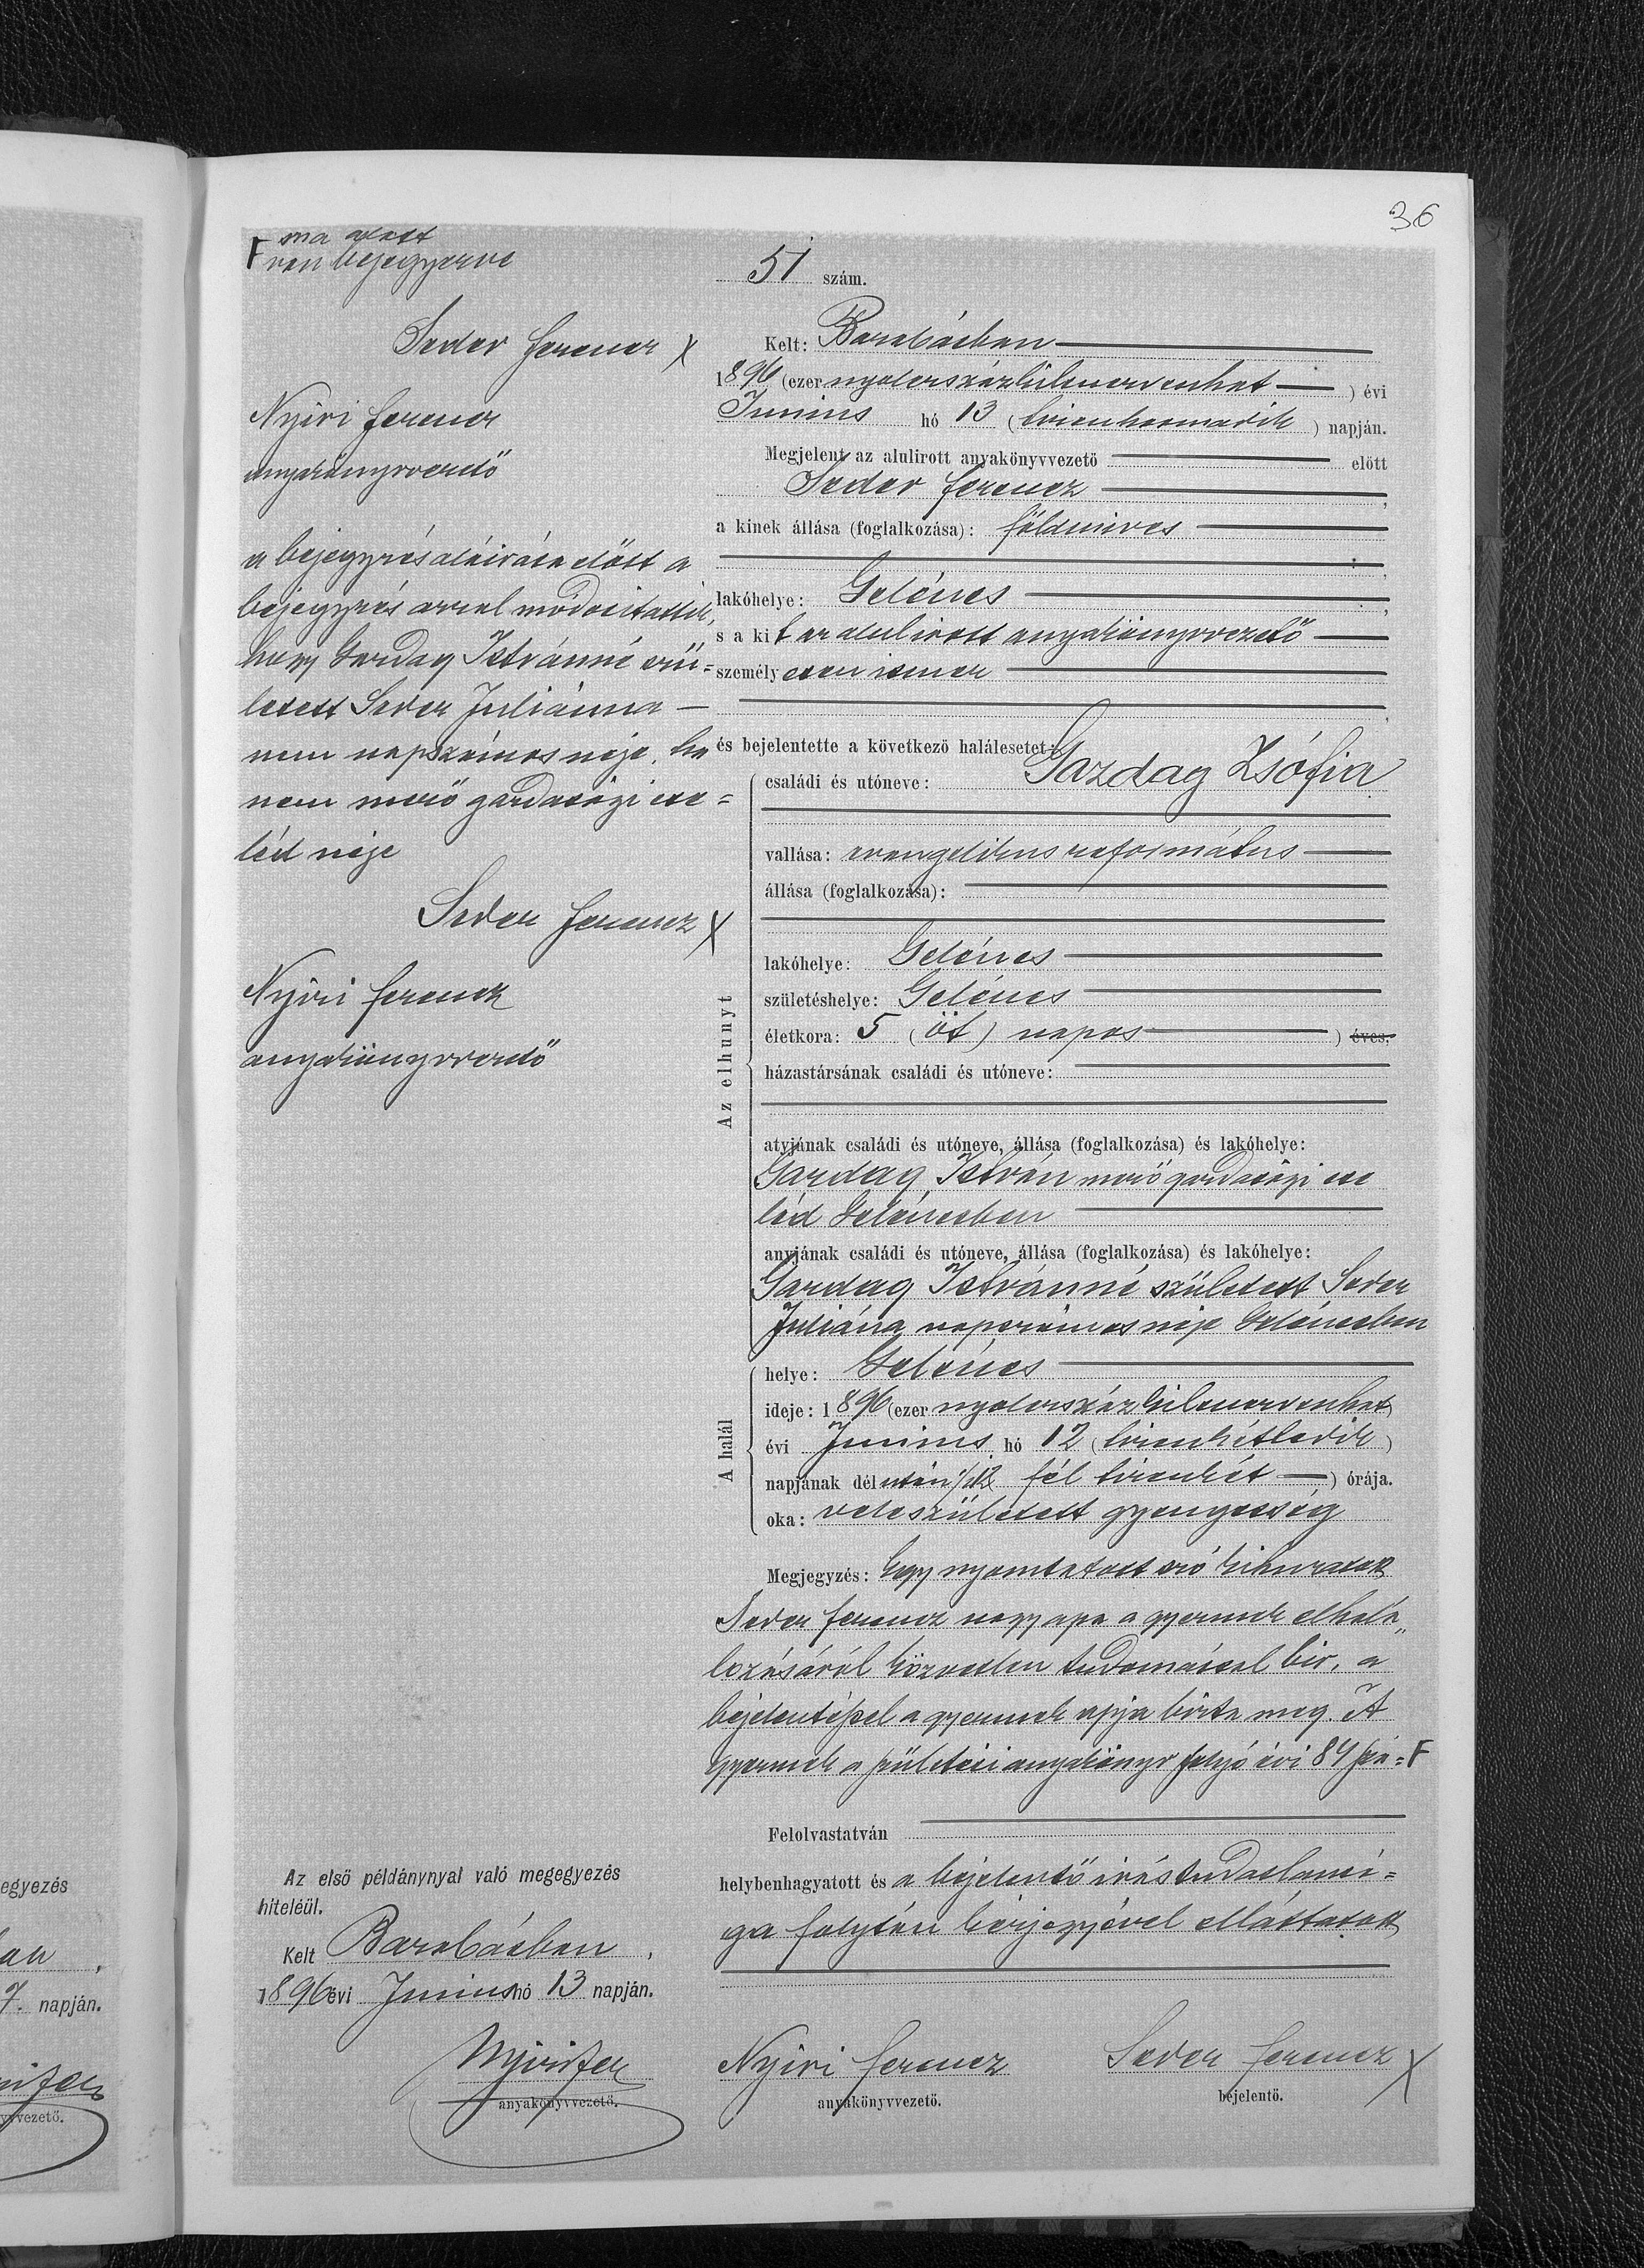 36
F ma alatt
van bejegyezve
Seder Ferencz X
Nyiri Ferencz
anyakönyvvezető
a bejegyzés aláirása előtt a
bejegyzés azzal módosittatik,
hogy Gazdag Istvánné szü=
letett Seder Juliánna —
nem napszámos neje, ha
nem mező gazdasági cse=
léd neje
Seder Ferencz X
Nyiri Ferencz
anyakönyvvezető
Az első példánynyal való megegyezés
hiteléül.
Kelt Barabásban,
1896 évi Junius hó 13 napján.
Nyiri Fer
anyakönyvvezető.
51 szám.
Kelt: Barabásban
1896 (ezer nyolczszázkilenczvenhat) évi
Junius hó 13 (tizenharmadik) napján.
Megjelent az alulirott anyakönyvvezető előtt
Seder Ferencz
a kinek állása (foglalkozása): földmives
lakóhelye: Gelénes
s a kit az alulirott anyakönyvvezető
személyesen ismer
és bejelentette a következő halálesetet:
Az elhunyt
családi és utóneve: Gazdag Zsófia
vallása: evangelikus református
állása (foglalkozása):
lakóhelye: Gelénes
születéshelye: Gelénes
életkora: 5 (öt) napos ) éves.
házastársának családi és utóneve:
atyjának családi és utóneve, állása (foglalkozása) és lakóhelye:
Gazdag István mező gazdasági cse
léd Gelénesben
anyjának családi és utóneve, állása (foglalkozása) és lakóhelye:
Gazdag Istvánné született Seder
Juliána napszámos neje Gelénesben
A halál
helye: Gelénes
ideje: 1896 (ezer nyolczszázkilenczvenhat)
évi Junius hó 12 (tizenkettedik)
napjának délután 1/2 12 fél tizenkét ) órája.
oka: veleszületett gyengeség
Megjegyzés: Egy nyomtatott szó kihuzatott
Seder Ferencz nagyapa a gyermek elhalá„
lozásáról közvetlen tudomással bir, a
bejelentéssel a gyermek apja bizta meg. A
gyermek a születési anyakönyv folyó évi 84 szá= F
Felolvastatván
helybenhagyatott és a bejelentő irástudatlansá=
ga folytán kézjegyével elláttatott
Nyiri Ferencz
anyakönyvvezető.
Seder Ferencz X
bejelentő.
egyezés
7. napján.